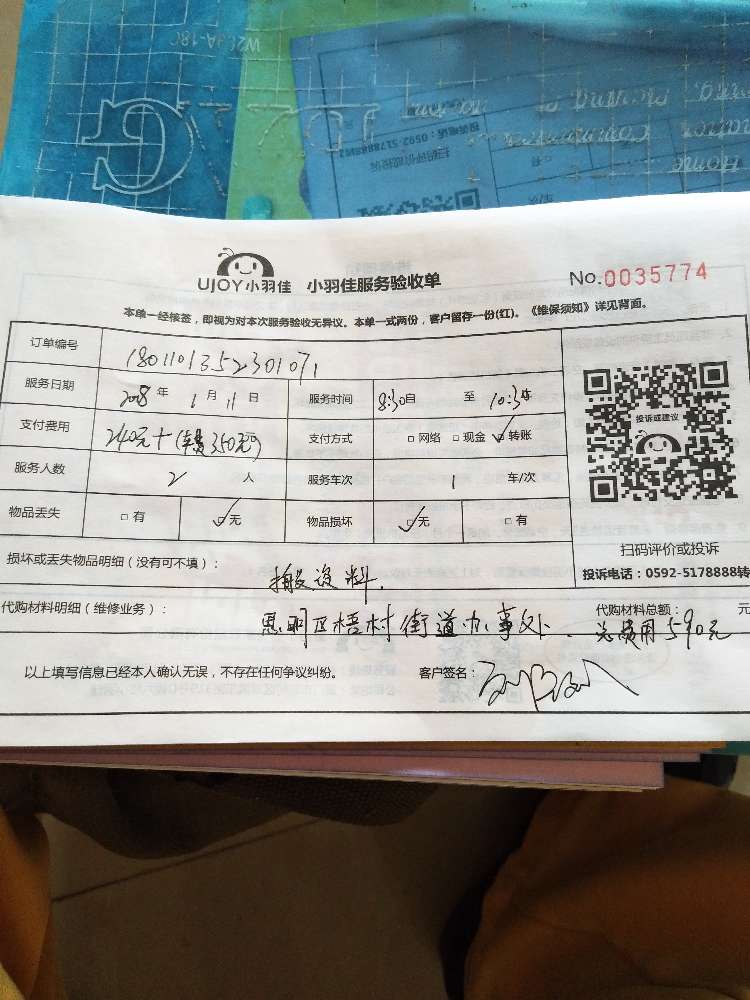 W2
A-18
Home
投诉电话：0592-5178888转
扫码评价或投诉
UJOY小羽佳 小羽佳服务验收单 No.0035774
本单一经核签，即视为对本次服务验收无异议。本单一式两份，客户留存一份(红)。《维保须知》详见背面。
订单编号 1801101352301071
服务日期 2018年 1月 11日 服务时间 8:30自 至 10:35
支付费用 240元+(车费350元) 支付方式 □网络 □现金 ☑转账
服务人数 2 人 服务车次 1 车/次
物品丢失 □有 ☑无 物品损坏 ☑无 □有
投诉或建议
扫码评价或投诉
投诉电话：0592-5178888转
损坏或丢失物品明细（没有可不填）： 搬资料.
代购材料明细（维修业务）： 思明区梧村街道办事处. 代购材料总额： 元
总费用590元
以上填写信息已经本人确认无误，不存在任何争议纠纷。 客户签名：